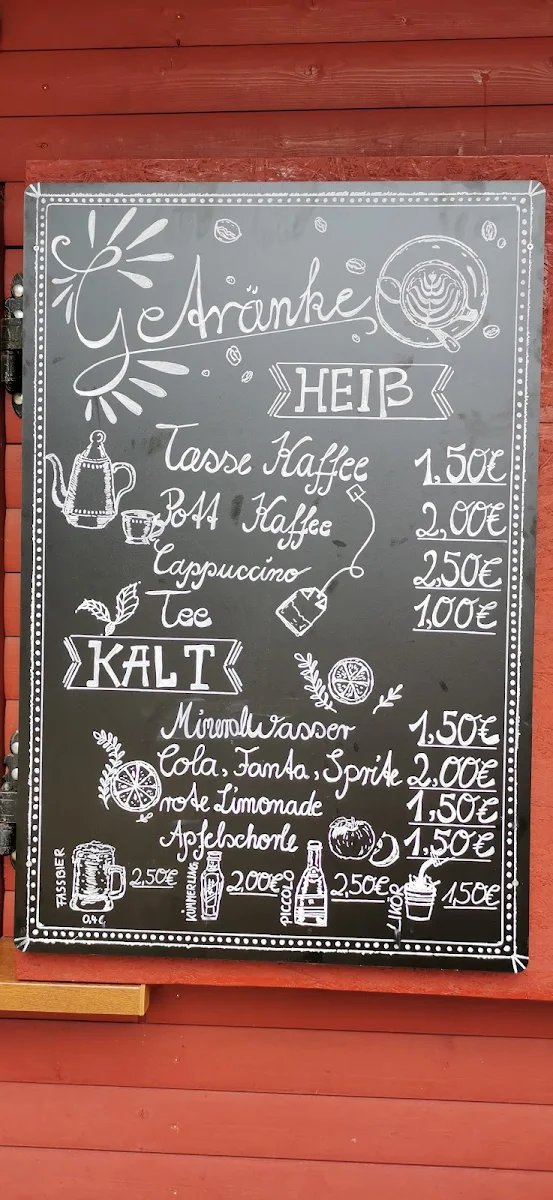 Getränke
HEIß
Tasse Kaffee 1,50€
Pott Kaffee 2,00€
Cappuccino 2,50€
Tee 1,00€
KALT
Mineralwasser 1,50€
Cola, Fanta, Sprite 2,00€
rote Limonade 1,50€
Apfelschorle 1,50€
FASSBIER 0,4 2,50€
KÜMMERLING 2,00€
PICCOLO 2,50€
LIKÖR 1,50€